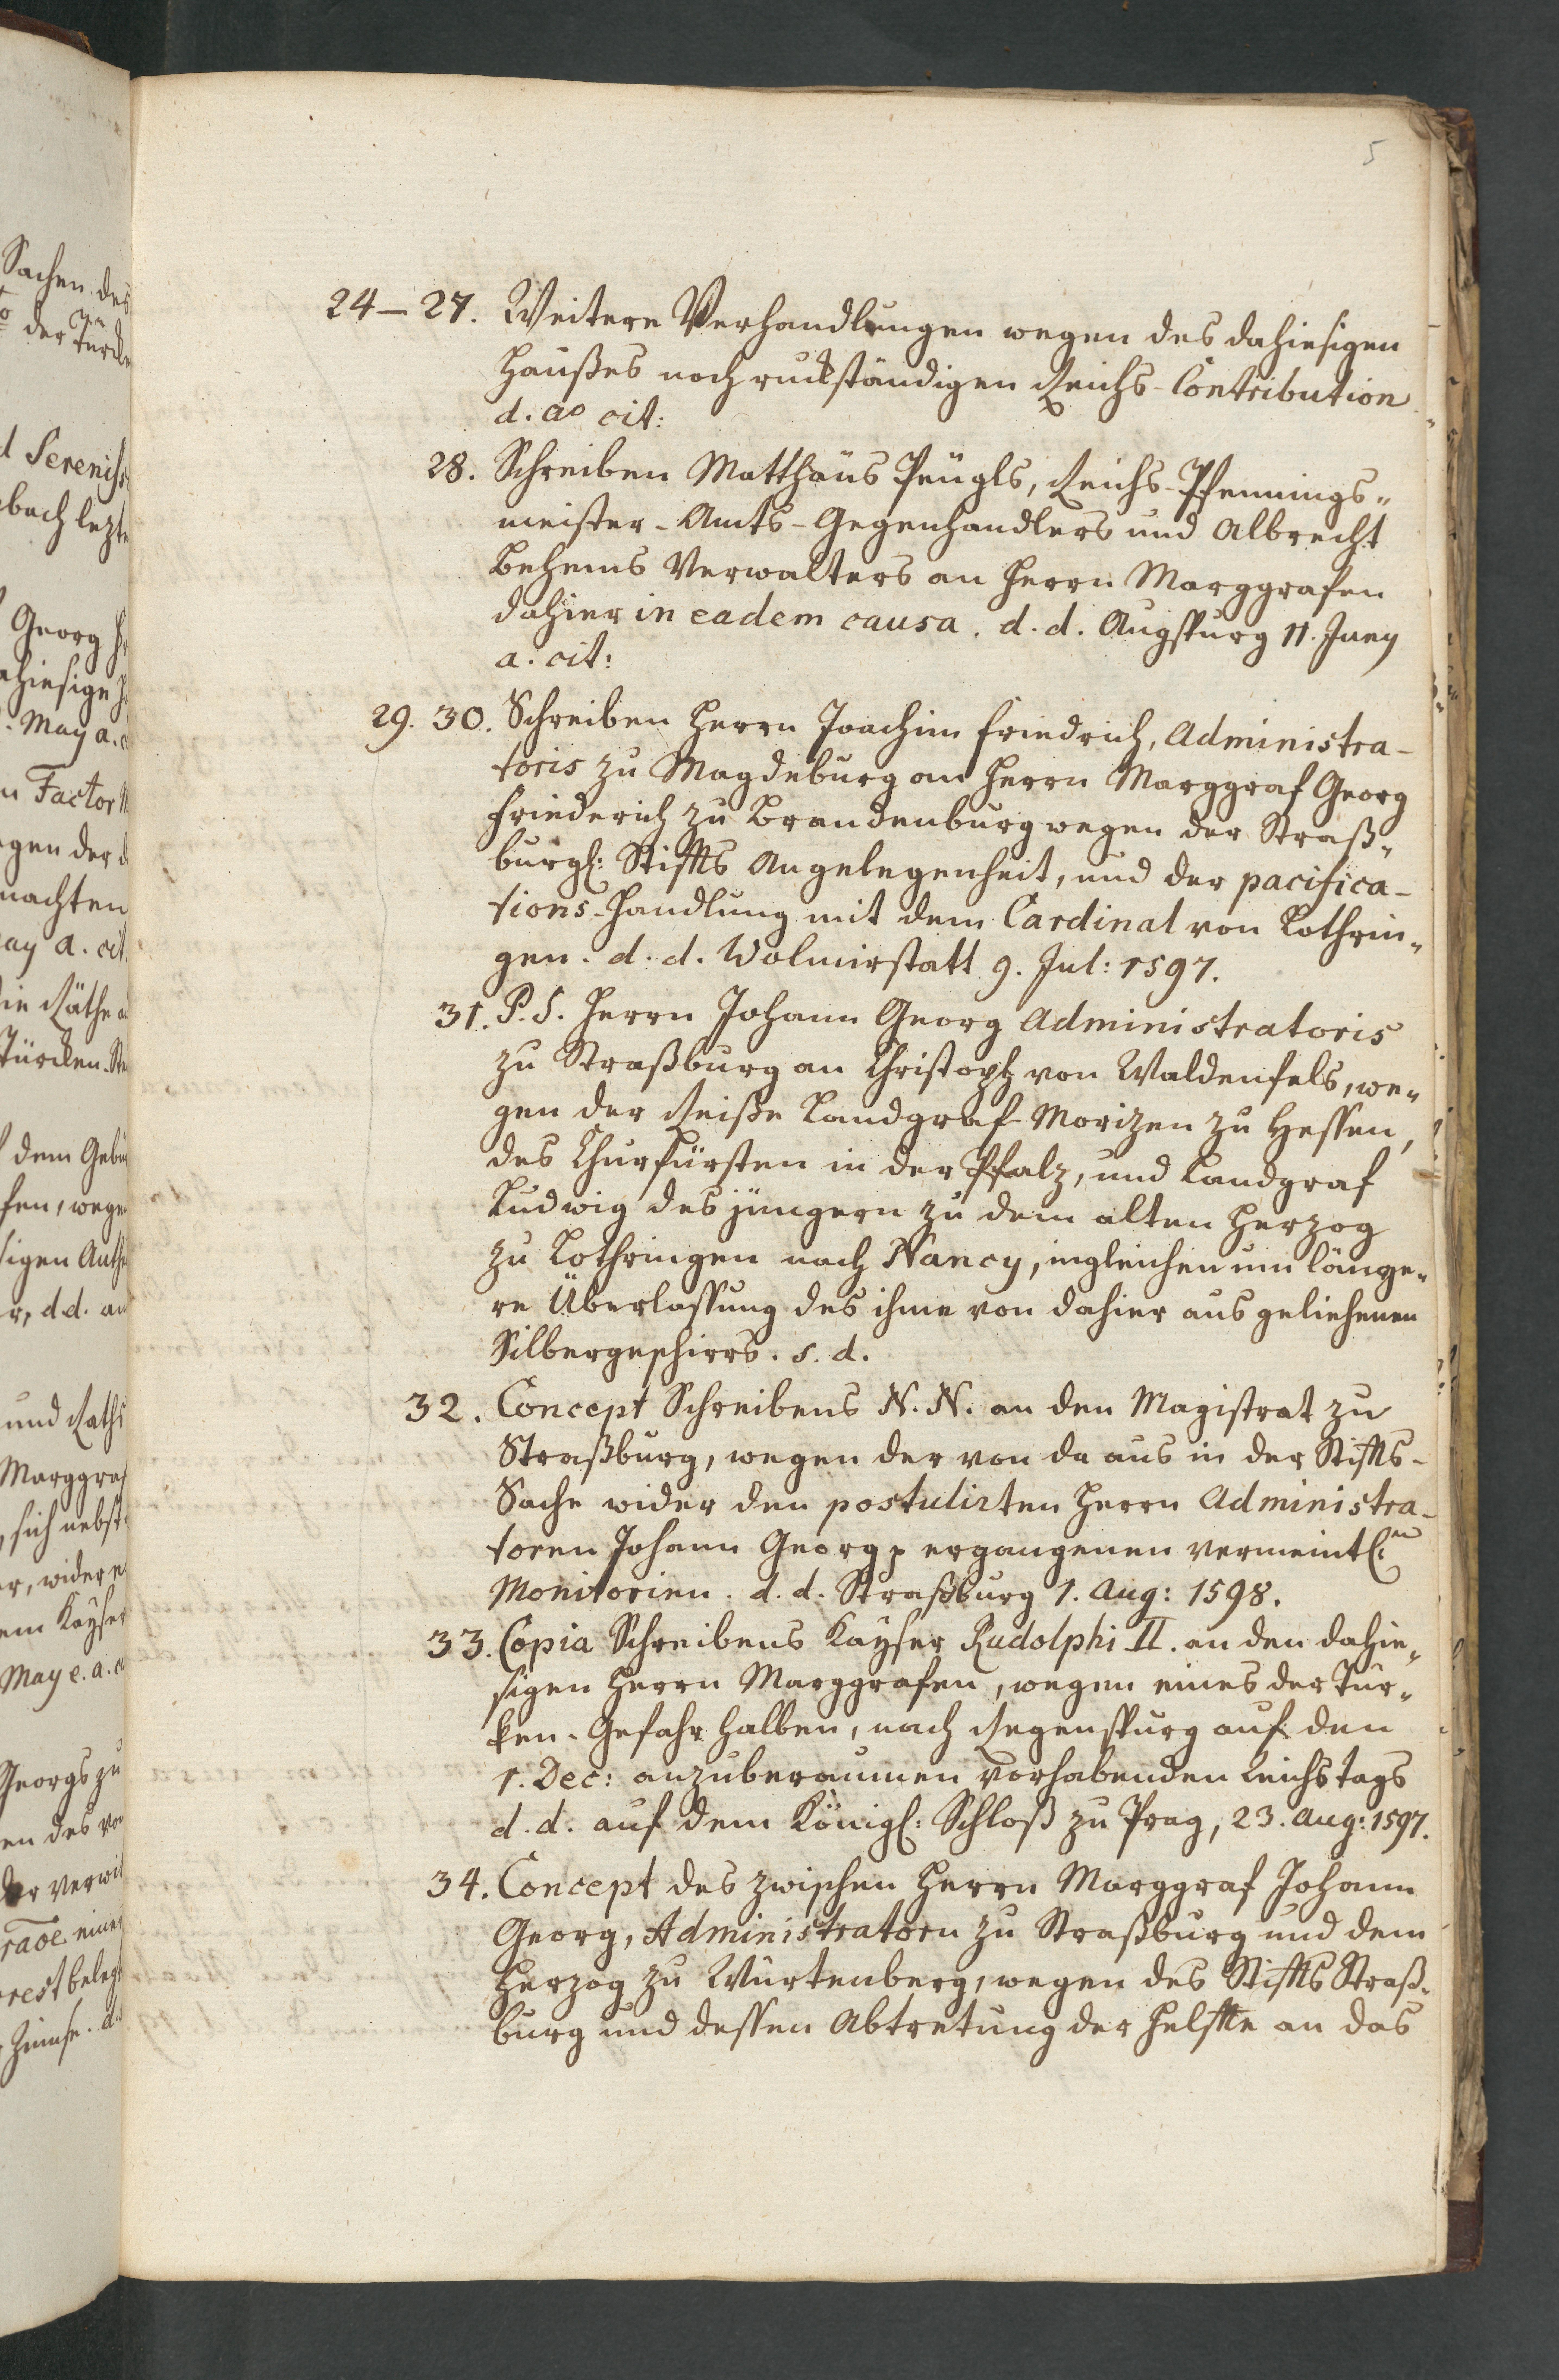 5
24–27. Weitere Verhandlungen wegen des dahiesigen
Haußes noch ruckständigen Reichs-Contribution
d. ao cit:
28. Schreiben Matthäus Peügls, Reichs-Pfennings„
meister-Amts-Gegenhandlers und Albrecht
Behems Verwalters an Herrn Marggrafen
dahier in eadem causa. d. d. Augspurg 11. Juny
a. cit:
29. 30. Schreiben Herrn Joachim Friedrich, Administra-
toris zu Magdeburg an Herrn Marggraf Georg
Friederich zu Brandenburg wegen der Straß„
burgl: Stiffts Angelegenheit, und der pacifica-
tions-Handlung mit dem Cardinal von Lothrin„
gen. d. d. Wolmirstatt 9. Jul: 1597.
31. P. S. Herrn Johann Georg Administratoris
zu Straßburg an Christoph von Waldenfels, we„
gen der Reiße Landgraf Morizen zu Hessen,
des Churfürsten in der Pfalz, und Landgraf
Ludwig des jüngern zu dem alten Herzog
zu Lothringen nach Nancy, ingleichen um länge„
re Überlassung des ihme von dahier aus geliehenen
Silbergeschirrs. s. d.
32. Concept Schreibens N. N. an den Magistrat zu
Straßburg, wegen der von da aus in der Stiffts-
Sache wider den postulirten Herrn Administra-
toren Johann Georg p ergangenen vermeintl:en
Monitorien. d. d. Straßburg 1. Aug: 1598.
33. Copia Schreibens Kayser Rudolphi II. an den dahie„
sigen Herrn Marggrafen, wegen eines der Tür„
ken-Gefahr halben, nach Regenspurg auf den
1. Dec: anzuberaumen vorhabenden Reichs Tags
d. d. auf dem Königl: Schloß zu Prag, 23. Aug: 1597.
34. Concept des zwischen Herrn Marggraf Johann
Georg, Administratorn zu Straßburg und dem
Herzog zu Würtenberg, wegen des Stiffts Straß„
burg und dessen Abtretung der Helffte an das